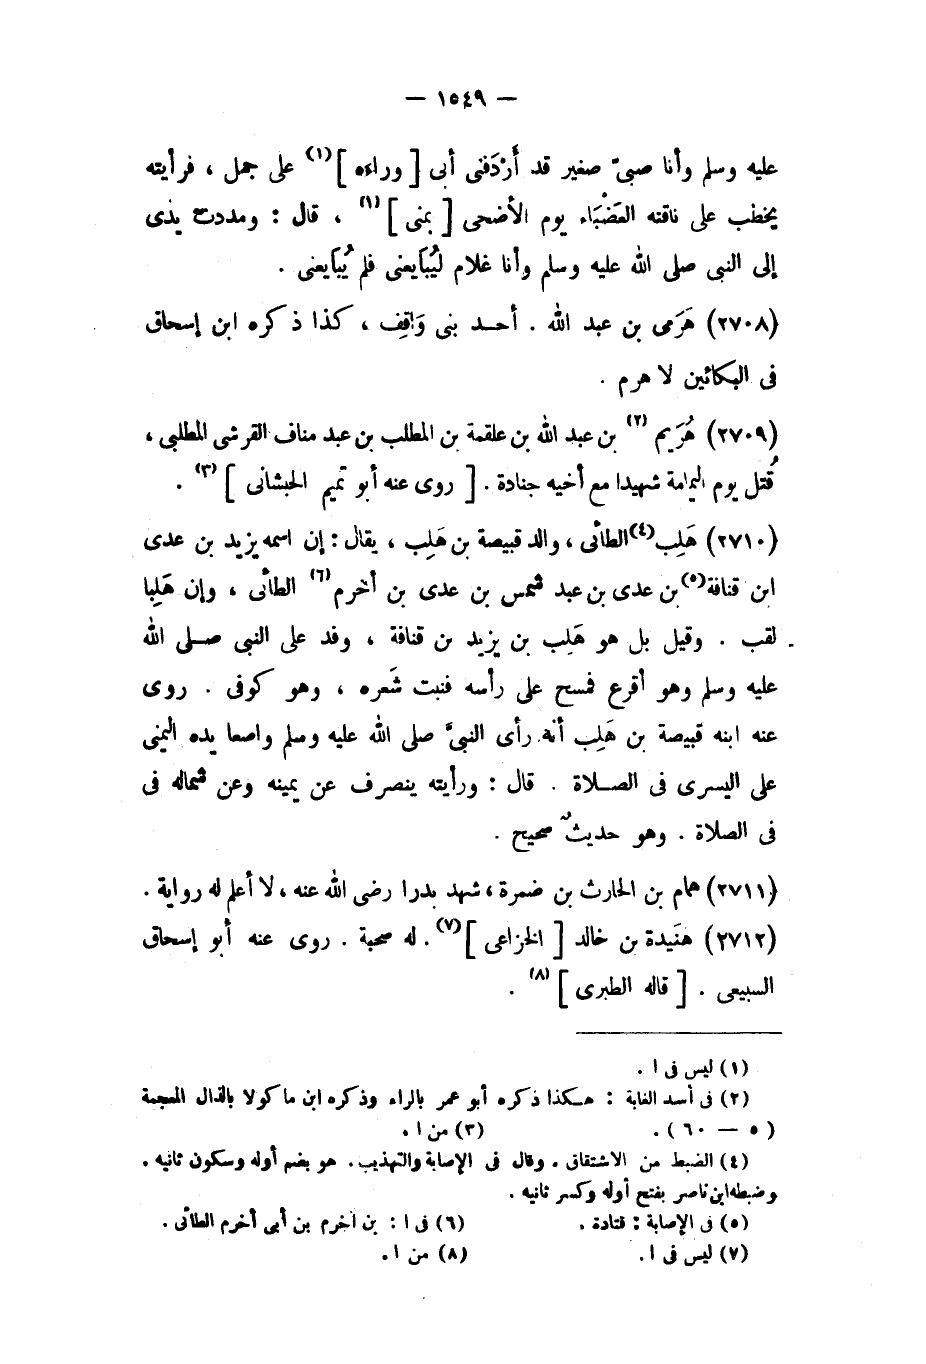 — ١٥٤٩ —
عليه وسلم وأنا صبىّ صغير قد أَرْدَفنى أبى [ وراءه ] (١) على جمل ، فرأيته
يخطب على ناقته العَضْبَاء يوم الأضحى [ بمنى ] (١) ، قال : ومددت يدى
إلى النبى صلى الله عليه وسلم وأنا غلام ليُبَايعنى فلم يُبَايعنى .
(٢٧٠٨) هَرَمى بن عبد الله . أحد بنى وَاقِف ، كذا ذكره ابن إسحاق
فى البكائين لا هرم .
(٢٧٠٩) هُرَيم (٢) بن عبد الله بن علقمة بن المطلب بن عبد مناف القرشى المطلبى ،
قُتل يوم اليمامة شهيدا مع أخيه جنادة . [ روى عنه أبو تميم الجبشانى ] (٣) .
(٢٧١٠) هَلِب (٤) الطائى ، والد قبيصة بن هَلِب ، يقال : إن اسمه يزيد بن عدى
ابن قنافة (٥) بن عدى بن عبد شمس بن عدى بن أخرم (٦) الطائى ، وإن هَلِبا
لقب . وقيل بل هو هَلِب بن يزيد بن قنافة ، وفد على النبى صلى الله
عليه وسلم وهو أقرع فمسح على رأسه فنبت شَعره ، وهو كوفى . روى
عنه ابنه قبيصة بن هَلِب أنه رأى النبىَّ صلى الله عليه وسلم واضعا يده اليمنى
على اليسرى فى الصلاة . قال : ورأيته ينصرف عن يمينه وعن شماله فى
فى الصلاة . وهو حديثٌ صحيح .
(٢٧١١) همام بن الحارث بن ضمرة ، شهد بدرا رضى الله عنه ، لا أعلم له رواية .
(٢٧١٢) هُنَيدة بن خالد [ الخزاعى ] (٧) . له صحبة . روى عنه أبو إسحاق
السبيعى . [ قاله الطبرى ] (٨) .
(١) ليس فى ا .
(٢) فى أسد الغابة : هكذا ذكره أبو عمر بالراء وذكره ابن ماكولا بالذال المعجمة
( ٥ — ٦٠ ) . (٣) من ا .
(٤) الضبط من الاشتقاق . وقال فى الإصابة والتهذيب . هو بضم أوله وسكون ثانيه .
وضبطه ابن ناصر بفتح أوله وكسر ثانيه .
(٥) فى الإصابة : قتادة . (٦) فى ا : بن أخرم بن أبى أخرم الطائى .
(٧) ليس فى ا . (٨) من ا .